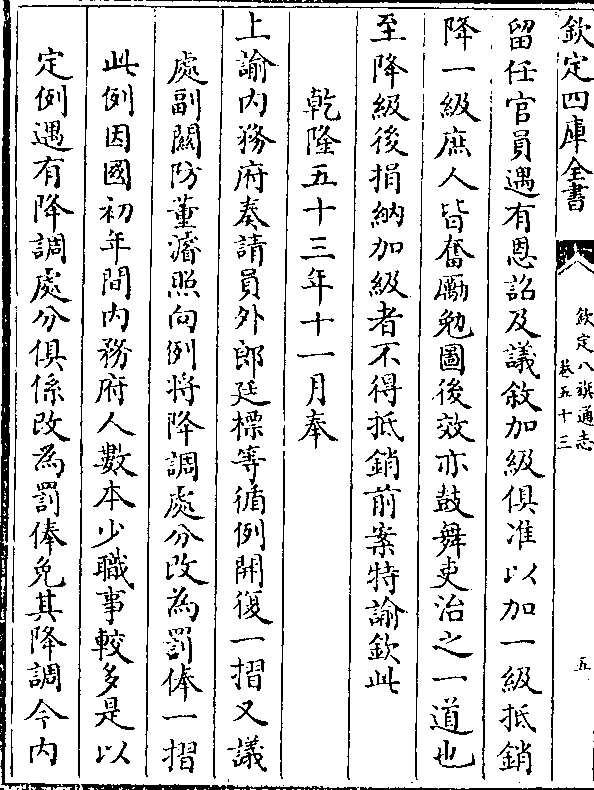 欽定四庫全書
欽定八旗通志
卷五十三
五
留任官員遇有恩詔及議敘加級俱准以加一級抵銷
降一級庶人皆奮勵勉圖後效亦鼓舞吏治之一道也
至降級後捐納加級者不得抵銷前案特諭欽此
乾隆五十三年十一月奉
上諭内務府奏請員外郎廷標等循例開復一摺又議
處副關防董濬照向例將降調處分改為罰俸一摺
此例因國初年間内務府人數本少職事較多是以
定例遇有降調處分俱係改為罰俸免其降調今内